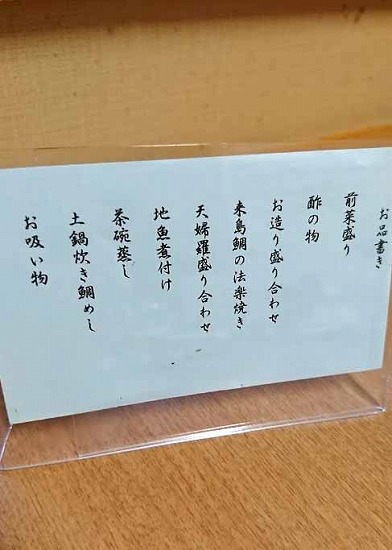 お品書き
前菜盛り
酢の物
お造り盛り合わせ
来島鯛の法楽焼き
天婦羅盛り合わせ
地魚煮付け
茶碗蒸し
土鍋炊き鯛めし
お吸い物